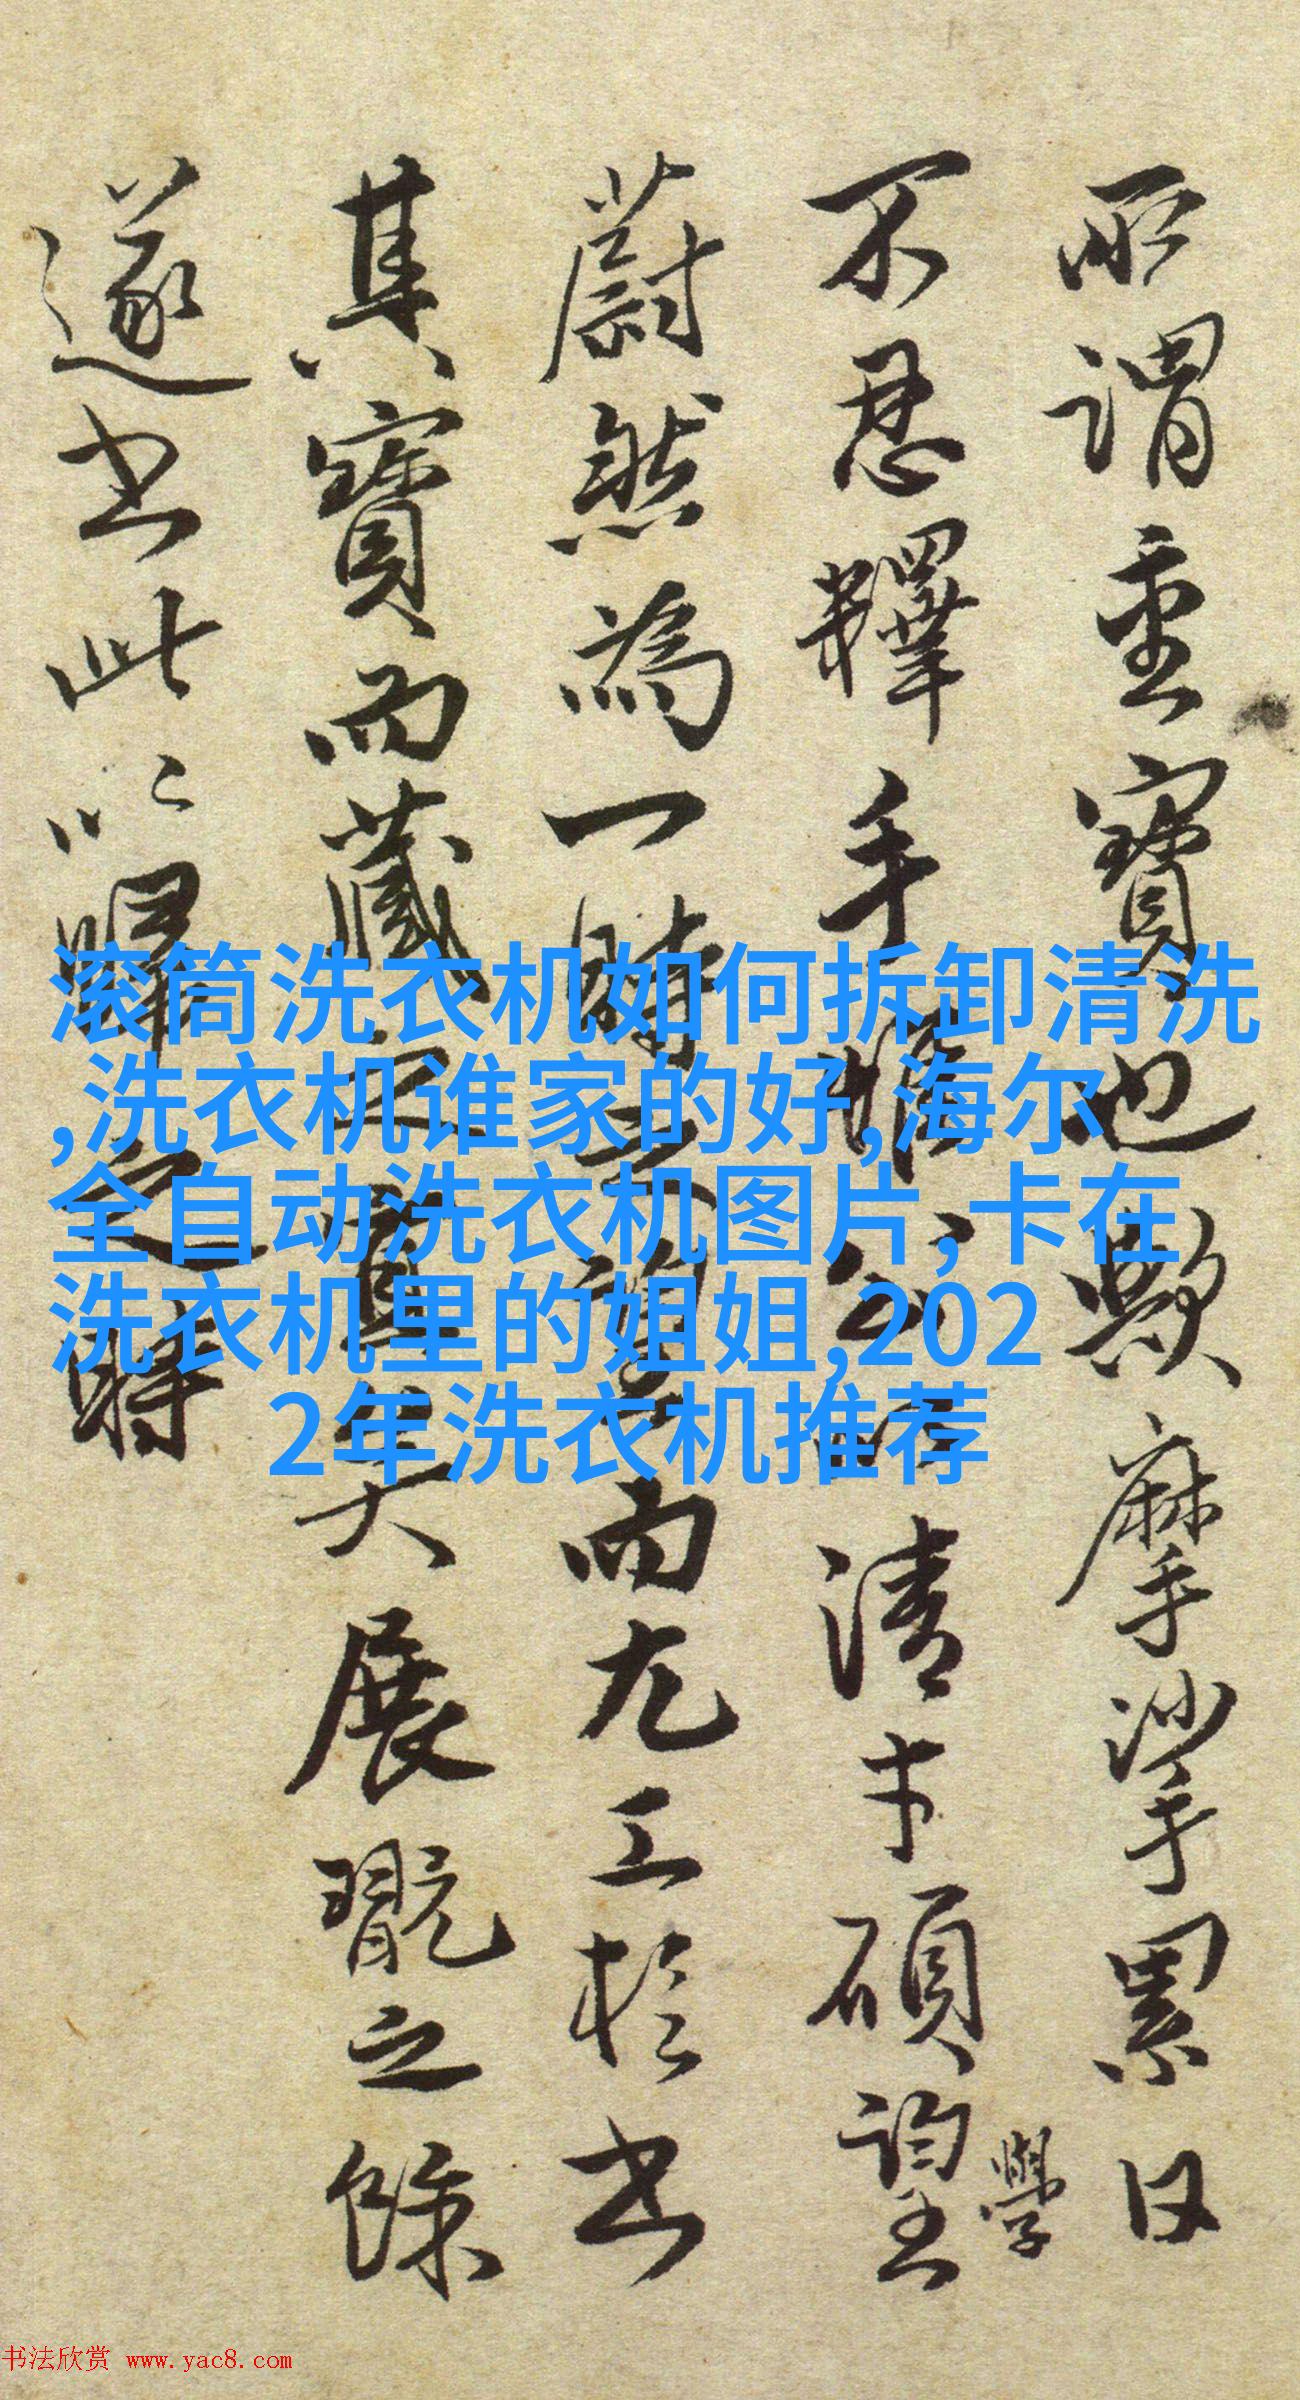 所謂至寶也歟摩挲累日
不忍釋手惟公以清才碩望學
蔚然為一時之望而尤工於書
其寶而藏之宜矣展翫之餘
遂書此以歸之時
滚筒洗衣机如何拆卸清洗
,洗衣机谁家的好,海尔
全自动洗衣机图片,卡在
洗衣机里的姐姐,202
2年洗衣机推荐
书法欣赏 www.yac8.com